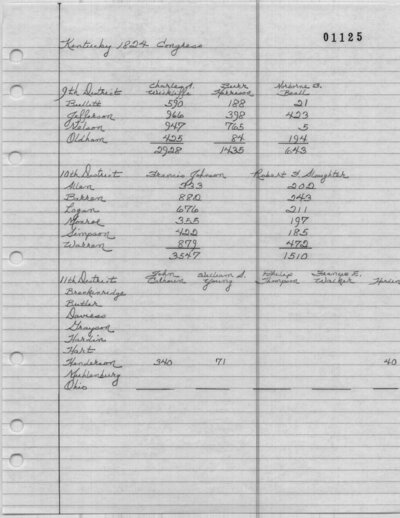 01125
Kentucky 1824 Congress
9th District Charles A. Wickliffe Burr Harrison Norborne B. Beall
Bullitt 590 188 21
Jefferson 966 398 423
Nelson 947 765 5
Oldham 425 84 194
2928 1435 643
10th District Francis Johnson Robert F. Slaughter
Allen 333 202
Barren 882 243
Logan 676 211
Monroe 355 197
Simpson 422 185
Warren 879 472
3547 1510
11th District John Calhoun William S. Young Philip Thompson Francis E. Walker Hardin
Breckenridge
Butler
Daviess
Grayson
Hardin
Hart
Henderson 340 71 40
Muhlenburg
Ohio